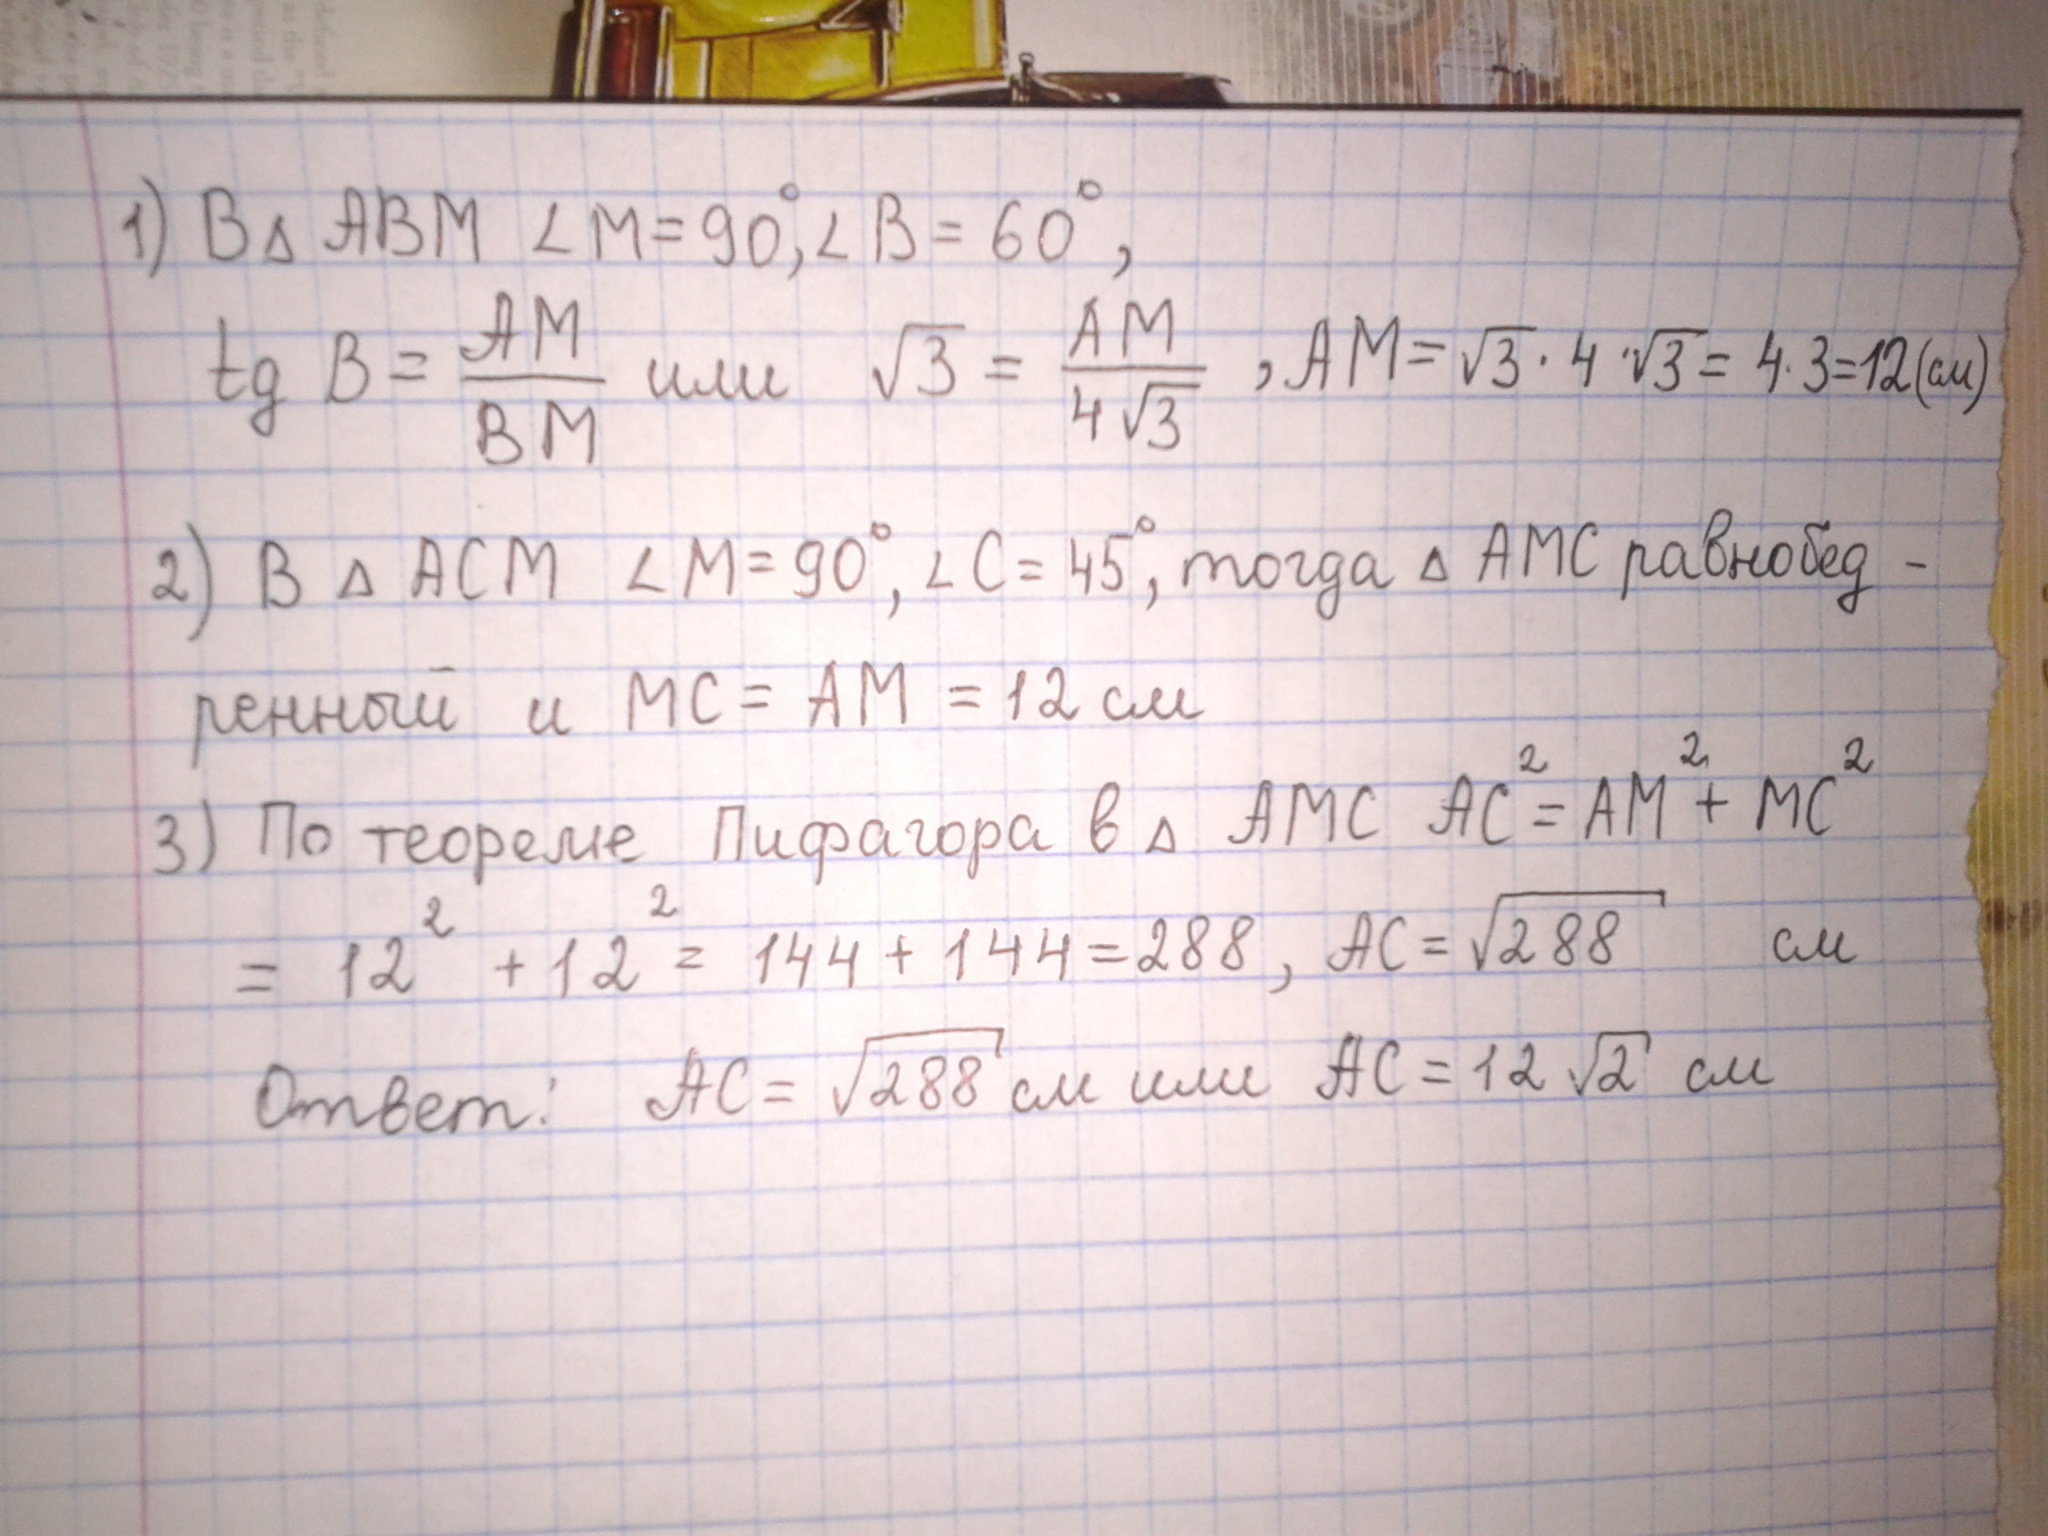 1) В △ ABM ∠M=90°, ∠B=60°,
tg B = AM/BM или √3 = AM/4√3, AM=√3·4·√3=4·3=12(см)
2) В △ ACM ∠M=90°, ∠C=45°, тогда △ AMC равнобед-
ренный и MC= AM =12 см
3) По теореме Пифагора в △ AMC AC²=AM²+MC²
= 12² +12²= 144+144=288, AC=√288 см
Ответ: AC=√288 см или AC=12√2 см